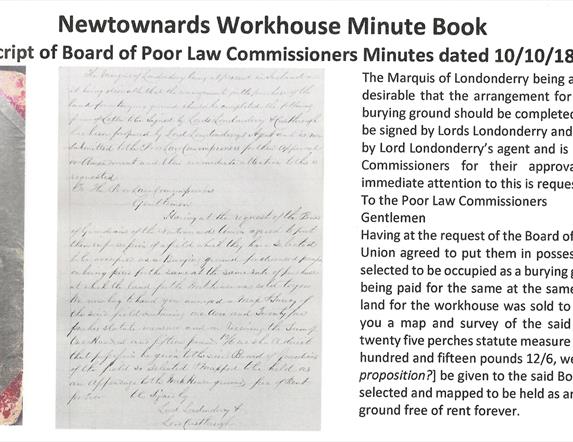 Newtownards Workhouse Minute Book
cript of Board of Poor Law Commissioners Minutes dated 10/10/18
The Marquis of Londonderry being at present in Ireland and
it being desirable that the arrangement for the purchase of the
land for burying ground should be completed the following
form of Letter to be signed by Lords Londonderry & Castlereagh
has been prepared by Lord Londonderry's Agent and is now
submitted to the Poor Law Commissioners for their approval
or Amendment and their immediate attention to this is
requested
To The Poor Law Commissioners
Gentlemen
Having at the request of the Board
of Guardians of the Newtownards Union agreed to put
them in possession of a field which they have selected
to be occupied as a Burying ground for deceased paupers
on being paid for the same at the same rate of purchase
at which the land for the Workhouse was sold to you
We now beg to hand you annexed a Map & Survey of
the said field containing one Acre and Twenty five
perches statute measure and on receiving the Sum of
One Hundred and fifteen pounds 12/6 we shall direct
that be given to the said Board of Guardians
of the field so Selected & mapped to be held as
an Appendage to the Work House ground free of Rent
Lord Londonderry &
Lord Castlereagh
The Marquis of Londonderry being a
desirable that the arrangement for
burying ground should be completed
be signed by Lords Londonderry and
by Lord Londonderry's agent and is
Commissioners for their approva
immediate attention to this is reques
To the Poor Law Commissioners
Gentlemen
Having at the request of the Board of
Union agreed to put them in posses
selected to be occupied as a burying g
being paid for the same at the same
land for the workhouse was sold to
you a map and survey of the said
twenty five perches statute measure
hundred and fifteen pounds 12/6, we
proposition?] be given to the said Bo
selected and mapped to be held as an
ground free of rent forever.